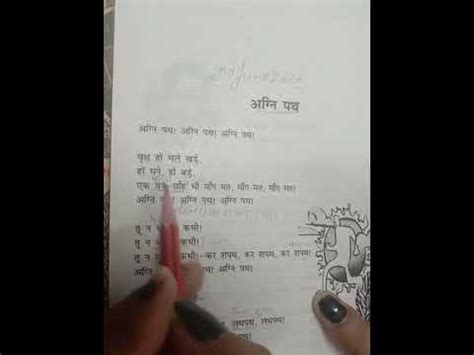 अग्नि पथ
अग्नि पथ! अग्नि पथ! अग्नि पथ!
वृक्ष हों भले खड़े,
हों घने, हों बड़े,
एक पत्र छाँह भी माँग मत, माँग मत, माँग मत!
अग्नि अग्नि पथ! अग्नि पथ!
तू न कभी!
तू न कभी!
तू न कभी!-कर शपथ, कर शपथ, कर शपथ!
अग्नि अग्नि पथ!
लथपथ, लथपथ!